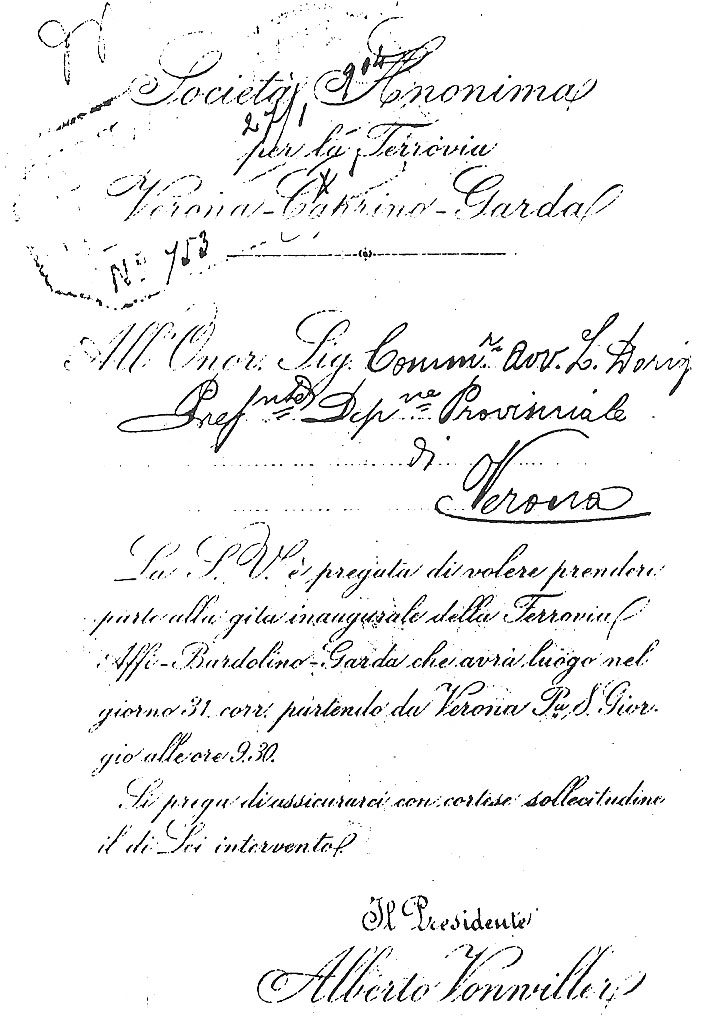 Società Anonima
27/1 904
per la Ferrovia
Verona-Caprino-Garda
No 753
All' Onor. Sig. Comm.re Avv. L. Dorig
Presnte Depne Provinciale
di
Verona
La S. V. è pregata di volere prendere
parte alla gita inaugurale della Ferrovia
Affi-Bardolino-Garda che avrà luogo nel
giorno 31 corr. partendo da Verona Pta S. Gior-
gio alle ore 9.30.
Si prega di assicurarci con cortese sollecitudine
il di Lei intervento
Il Presidente
Alberto Vonwiller